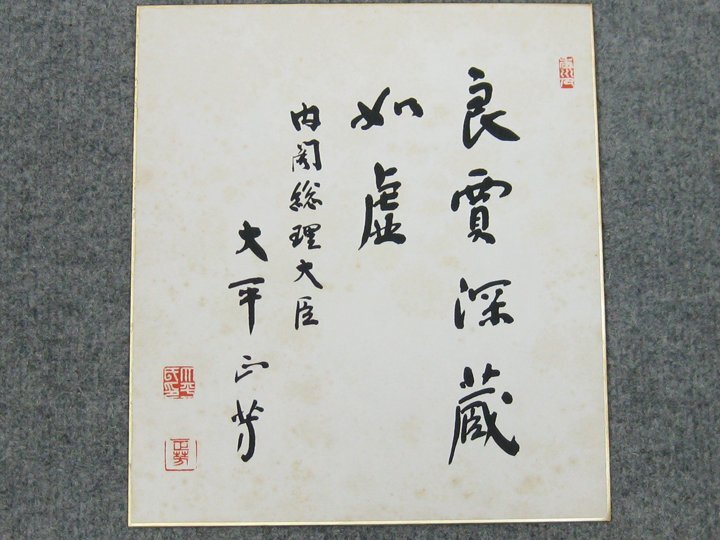 良賈深蔵
如虚
内閣総理大臣
大平正芳
正芳